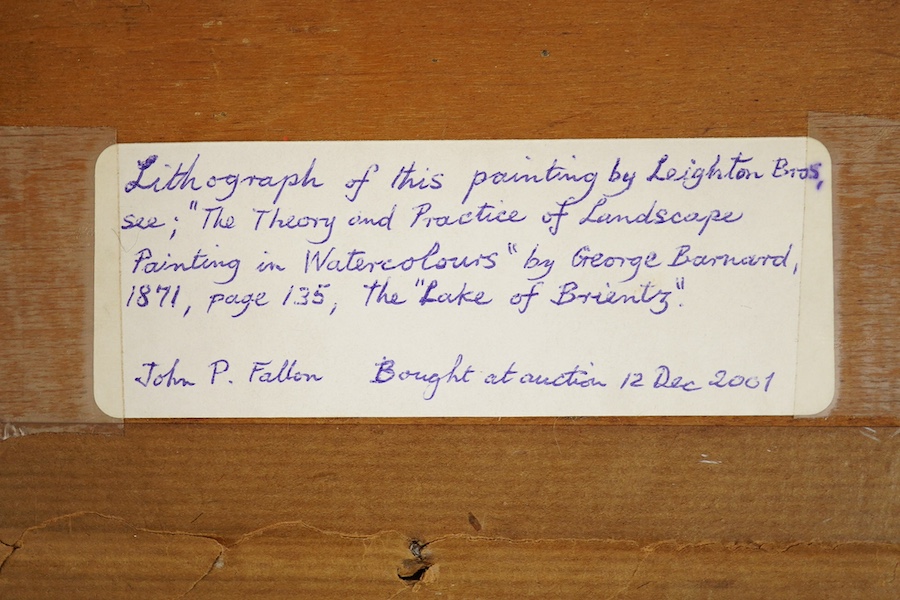 Lithograph of this painting by Leighton Bros,
see; "The Theory and Practice of Landscape
Painting in Watercolours" by George Barnard,
1871, page 135, The "Lake of Brientz".
John P. Fallon Bought at auction 12 Dec 2001